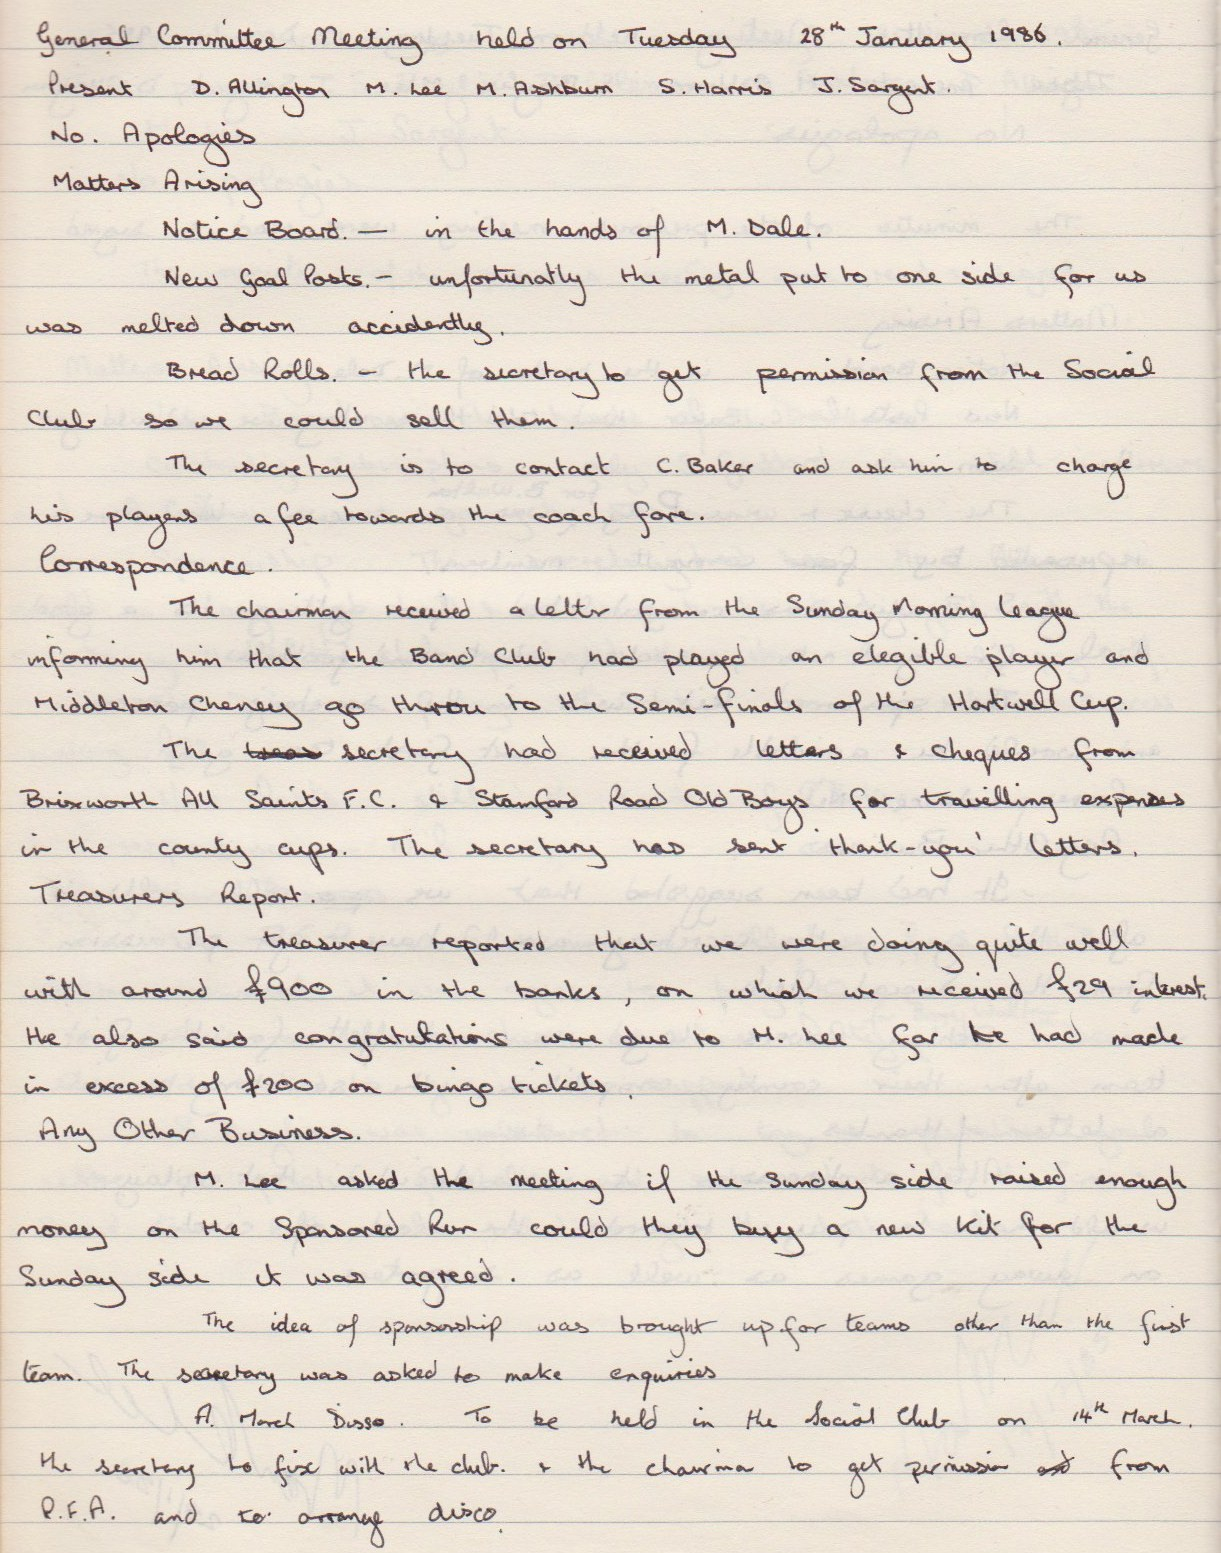 General Committee Meeting held on Tuesday 28th January 1986.
Present D. Allington M. Lee M. Ashburn S. Harris J. Sargent.
No. Apologies
Matters Arising
Notice Board. — in the hands of M. Dale.
New Goal Posts. - unfortunatly the metal put to one side for us
was melted down accidently.
Bread Rolls. - the secretary to get permission from the Social
Club so we could sell them.
The secretary is to contact C. Baker and ask him to charge
his players a fee towards the coach fare.
Correspondence.
The chairman received a letter from the Sunday Morning League
informing him that the Band Club had played an elegible player and
Middleton Cheney go throu to the Semi-Finals of the Hartwell Cup.
The secretary had received letters & cheques from
Brixworth All Saints F.C. & Stamford Road Old Boys for travelling expenses
in the county cups. The secretary has sent 'thank-you' letters.
Treasurers Report.
The treasurer reported that we were doing quite well
with around £900 in the banks, on which we received £29 interest.
He also said congratulations were due to M. Lee for he had made
in excess of £200 on bingo tickets.
Any Other Business.
M. Lee asked the meeting if the Sunday side raised enough
money on the Sponsored Run could they buy a new kit for the
Sunday side it was agreed.
The idea of sponsorship was brought up for teams other than the first
team. The secretary was asked to make enquiries
A. March Disso. To be held in the Social Club on 14th March.
the secretary to fix with the club. & the chairma to get permission from
P.F.A. and to arrange disco.